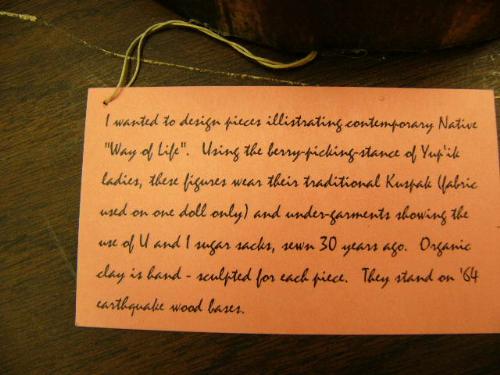 I wanted to design pieces illistrating contemporary Native
"Way of Life". Using the berry-picking-stance of Yup'ik
ladies, these figures wear their traditional Kuspak (fabric
used on one doll only) and under-garments showing the
use of U and I sugar sacks, sewn 30 years ago. Organic
clay is hand - sculpted for each piece. They stand on '64
earthquake wood bases.